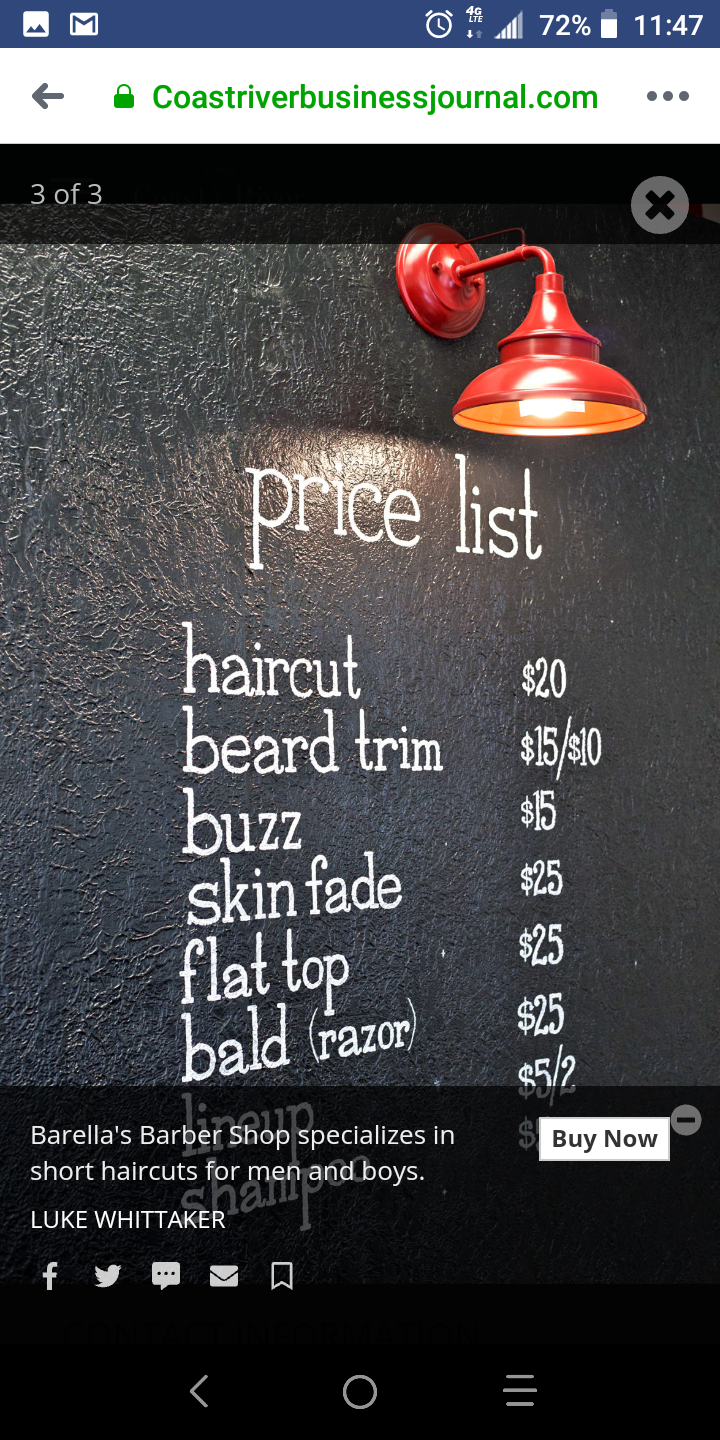 4G
LTE
72% 11:47
Coastriverbusinessjournal.com
3 of 3
price list
haircut $20
beard trim $15/$10
buzz $15
skin fade $25
flat top $25
bald (razor) $25
lineup $5/2
shampoo
Barella's Barber Shop specializes in
short haircuts for men and boys.
Buy Now
LUKE WHITTAKER
CONTACT INFORMATION